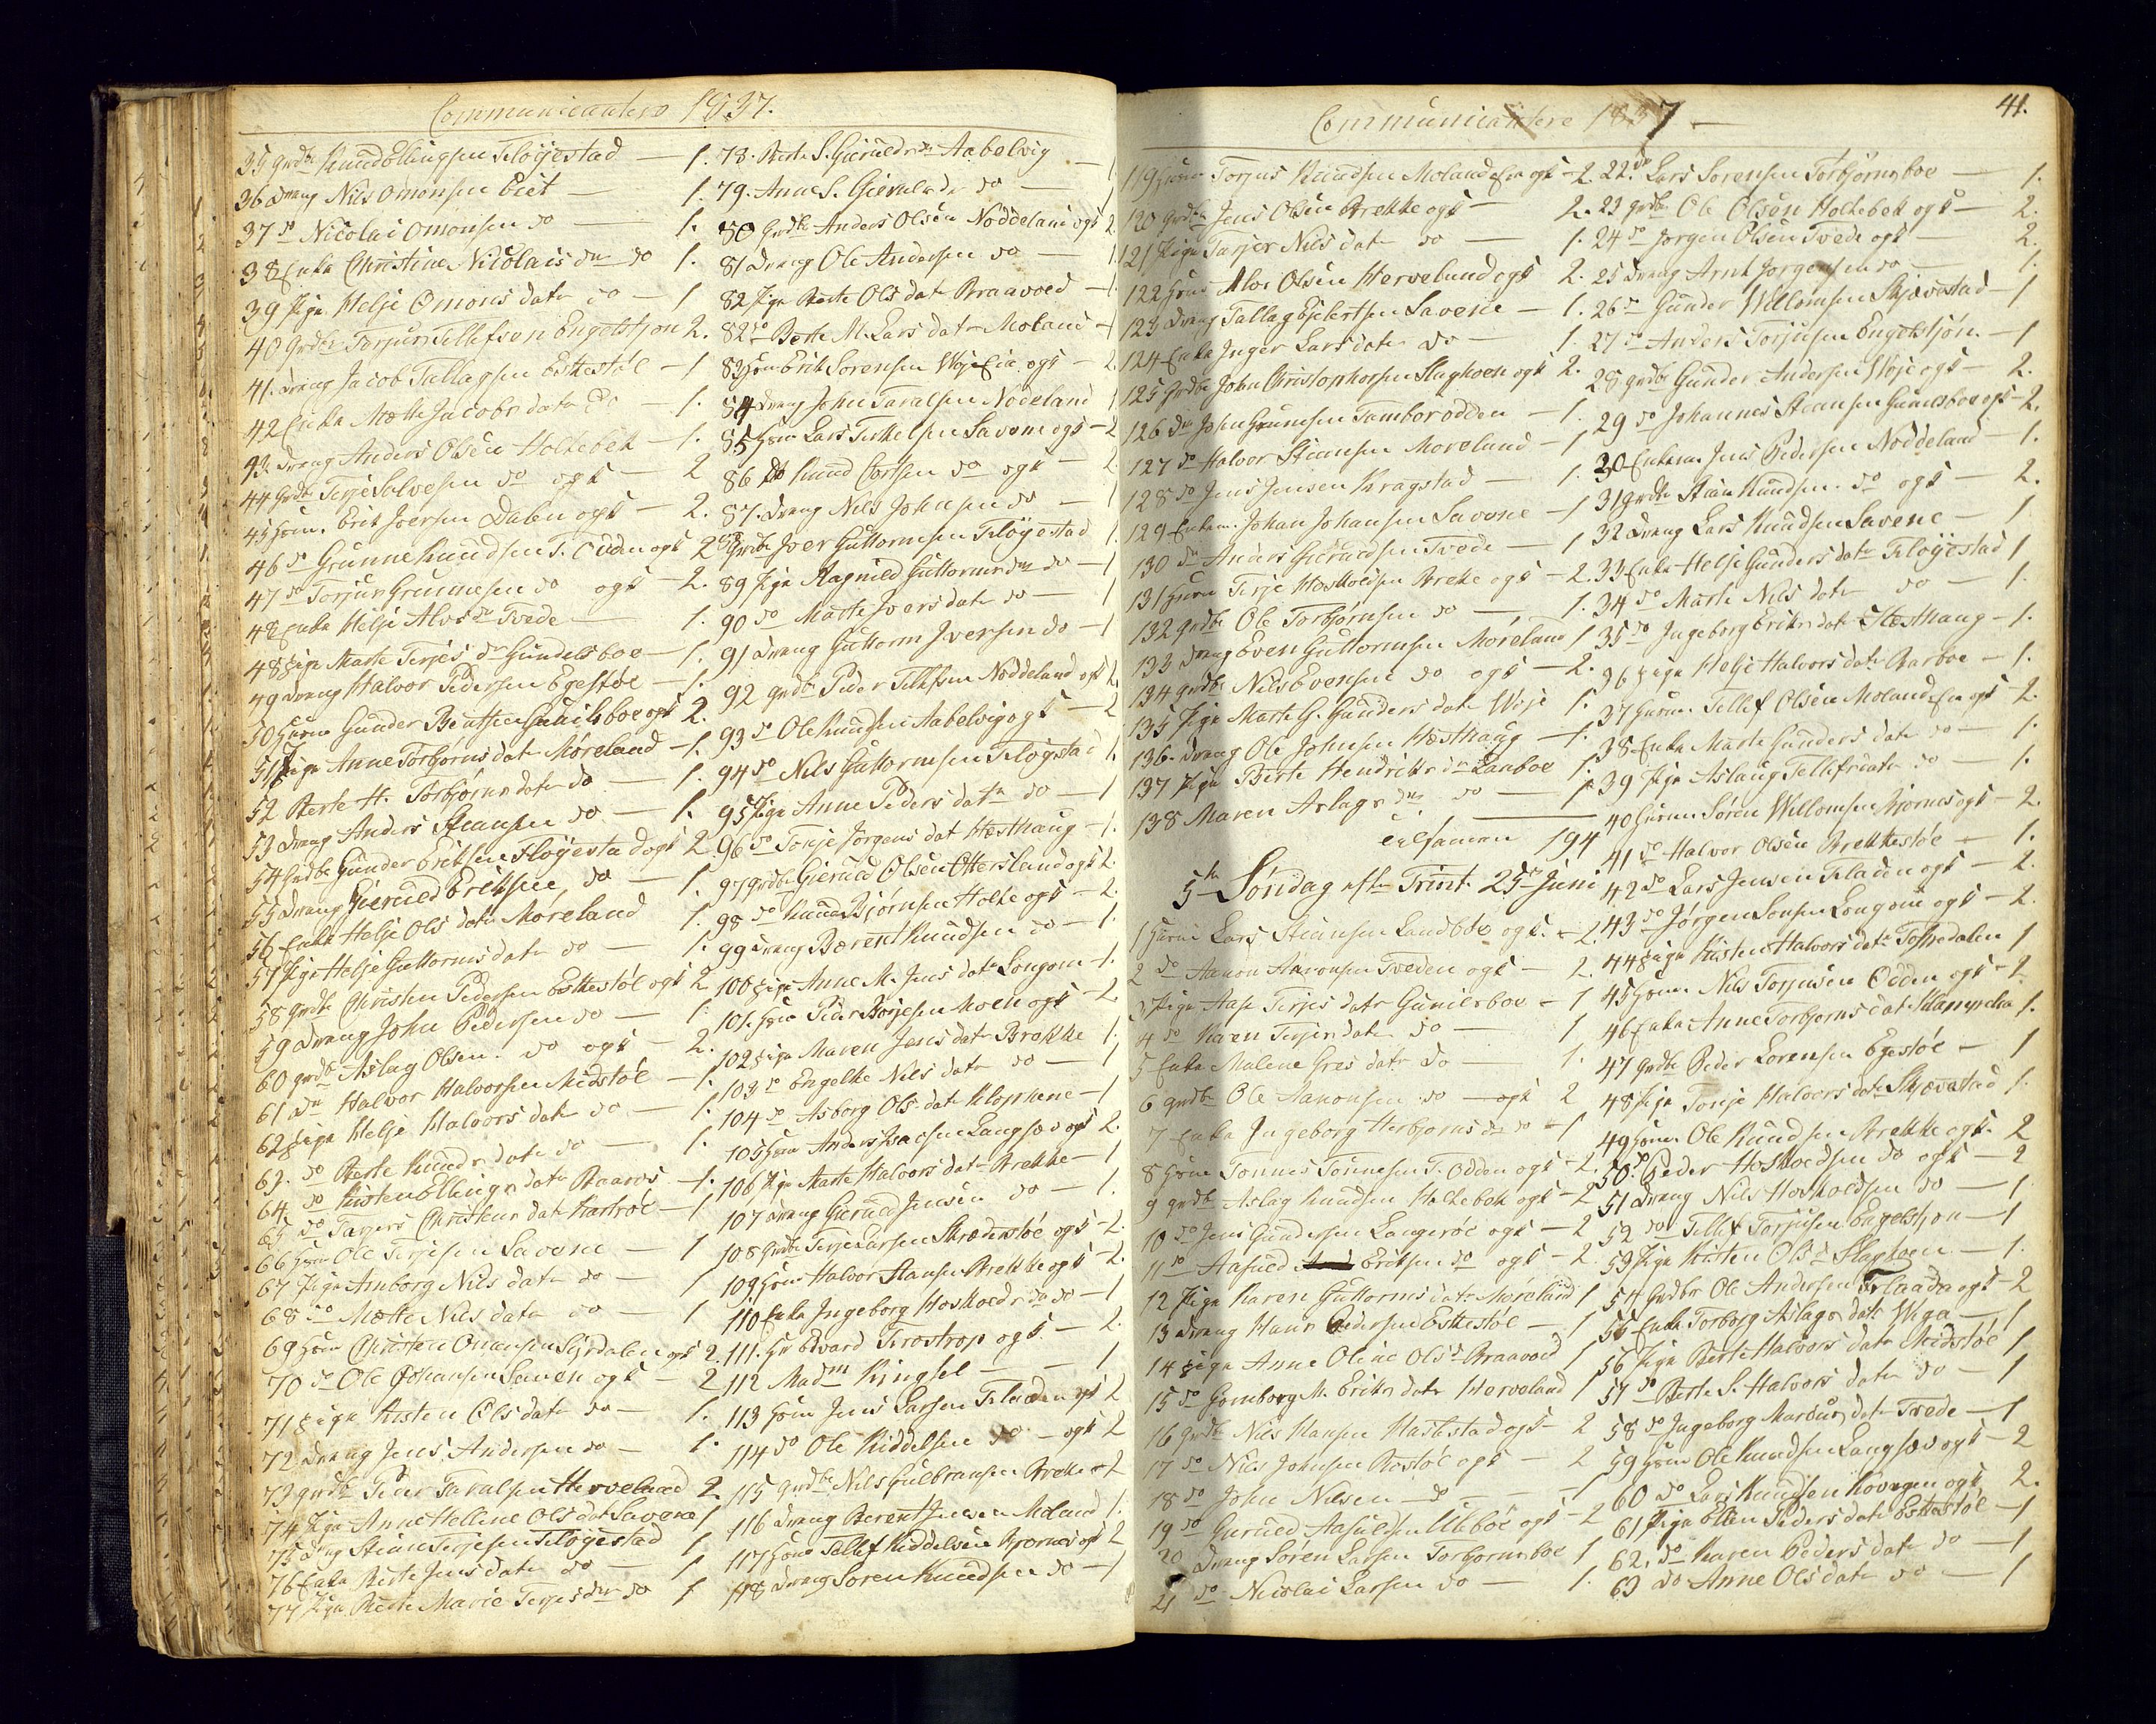 Communicantere 1837.
35 grdbr Knud Ellingsen Fløyestad — 1.
36 Dreng Nils Omonsen Eiet — 1.
37 do Nicolai Omonsen do — 1.
38 Enke Christine Nicolais dtr do 1.
39 Pige Helje Omons datr do — 1
40 Grdbr Torjus Tellefsen Engelstjøn 2.
41. Dreng Jacob Tallagsen Eskestøl — 1
42 Enke Mette Jacobs datr do — 1.
43 Dreng Anders Olsen Holtebek — 1.
44 Grdbr Terje Salvesen do ogs — 2
45 Huusm. Erik Joersen Dalen ogs — 2.
46 do Grunne Knudsen T. Odden ogs 2
47 do Torjus Grunnesen do ogs — 2.
48 Enke Helje Alvs dr Tvede — 1.
48 Pige Marte Terjes dr Gundersboe — 1.
49 Dreng Halvor Pedersen Egestøl — 1.
50 Huusm Gunder Bentsen Gunilsboe ogs 2.
51 Pige Anne Torbjørns datr Møreland — 1.
52 Berte H. Torbjørns datr do — 1.
53 Dreng Anders Steansen do — 1.
54 Grdbr Gunder Eriksen Fløyestad ogs 2
55 Dreng Gieruld Eriksen, do — 1.
56 Enke Helje Ols datr Møreland 1.
57 Pige Helje Guttorms datr do — 1.
58 grdbr Christen Pedersen Eskestøl ogs 2
59 Dreng John Pedersen do — 1.
60 grdbr Aslag Olsen do ogs — 2.
61 Dn Halvor Halvorsen Midstøl — 1.
62 Pige Helje Halvors datr do — 1.
63. do Berte Knuds datr do — 1.
64. do Kisten Ellings datr Raaros — 1.
65 do Tarjers Christens datr Kartrøe — 1
66 Huusm Ole Terjesen Savene — 1
67 Pige Arnborg Nils datr do — 1
68 do Mette Nils datr do — 1
69 Huusm Christen Omonsen Syrdalen ogs 2.
70 do Ole Johansen Saven ogs — 2
71 Pige Kisten Ols datr do — 1.
72 Dreng Jens Andersen do — 1.
73 grdbr Peder Taralsen Hervelund 2.
74 Pige Anne Hellene Ols datr Savene 1
75 Dreng Stian Terjesen Fløyestad 1
76 Enke Berte Jens datr do — 1
77 Pige Berte Marie Terjes dtr do 1
78. Berte S. Gierulds dr Aabelvig — 1
79. Anne S. Gierulds dr do — 1
80 Grdbr Anders Olsen Noddeland ogs 2.
81 Dreng Ole Andersen do — 1.
82 Pige Berte Ols datr Braavoed — 1
82 do Berte M. Lars datr Moland — 1
83 Huusm Erik Sorensen Woje Eie ogs — 2.
84 Dreng John Taralsen Nodeland 1
85 Huusm Lars Terkelsen Savene ogs — 2
86 do Knud Cortsen do ogs — 2.
87. Dreng Nils Johnsen do — 1
88 Grdbr Joer Guttormsen Fløyestad 1.
89 Pige Ragnild Guttorms dtr do — 1
90 do Matte Joers datr do — 1
91 Dreng Guttorm Iversen do — 1
92 grdbr Peder Tellefsen Noddeland ogs 2
93 do Ole Knudsen Aabelvig ogs — 2
94 do Nils Guttormsen Fløyestad 1.
95 Pige Anne Peders datr do — 1
96 do Tonje Jørgens dat Hesthaug — 1.
97 grdbr Gieruld Olsen Otterslund ogs 2.
98 do Knud Bjørnsen Holte ogs — 2.
99 Dreng Bærent Knudsen do — 1.
100 Pige Anne M. Jens datr Longom — 1.
101. Huusm Peder Børjesen Moen ogs — 2.
102 Pige Maren Jens datr Brekke 1.
103 do Engelke Nils datr do — 1
104 do Asborg Ols datr Klophene — 1
105 Huusm Anders Isacsen Langsæv ogs 2.
106 Pige Marte Halvors datr Brekke — 1
107 Dreng Gieruld Jensen do — 1.
108 Grdbr Terje Larsen Skræderstøe ogs — 2.
109 Huusm Halvor Hansen Brekke ogs — 2.
110 Enke Ingeborg Hoskolds dr do — 1
111. Hr Edvard Tirostrop ogs — 2.
112 Madm Ringsel — 1
113 Huusm Jens Larsen Fladen ogs 2
114 do Ole Kiddelsen do — ogs 2
115 grdbr Nils Gulbransen Breke o 2
116 Dreng Berent Jensen Moland 1.
117 Huusm Tellef Kiddelsen Bjornes ogs 2
118 Dreng Soren Knudsen do — 1
Communicantere 1837 —
41.
119 Huusm Torjus Knudsen Molands Eie ogs — 2.
120 Grdbr Jens Olsen Brekke ogs — 2.
121 Pige Tarjer Nils datr do — 1.
122 Huusm Alve Olsen Hervelund ogs 2.
123 Dreng Tallag Ejelertsen Savene — 1.
124 Enke Inger Lars datr do — 1.
125 Grdbr John Christophersen Slaghoen ogs 2.
126 do John Grunnsen Tamborodden — 1.
127 do Halvor Steansen Moreland — 1
128 do Jens Jensen Kragstad — 1.
129 Enkem. Johan Johansen Savene — 1
130 do Anders Gieruldsen Tvede — 1
131 Huusm Terje Hoskoldsen Breke ogs — 2.
132 grdbr Ole Torbjørnsen do — 1.
133 Dreng Even Guttormsen Møreland 1
134 grdbr Nils Evensen do ogs — 2.
135 Pige Marte G. Gunders datr Woje 1.
136. Dreng Ole Johnsen Hesthaug — 1.
137 Pige Berte Hendriks dr Lanboe 1.
138 Maren Aslags dtr do — 1
tilsamen 194
5te Søndag efter Trint. 25de Juni
1 Huusm Lars Steansen Landboe ogs. — 2.
2 do Aanon Aanonsen Tveden ogs — 2.
3 Pige Aase Terjes datr Gunilsboe — 1
4 do Karen Terjes datr do — 1
5 Enke Malene Gres datr do 1.
6 grdbr Ole Aanonsen do — ogs 2
7 Enke Ingeborg Herbjorns dr do — 1
8 Huusm Tonnes Tonnesen T. Odden ogs — 2.
9 grdbr Aslag Knudsen Holtebek ogs — 2
10 do Jens Gundersen Langerøe ogs — 2
11 do Aasuld Eriksen do ogs — 2.
12 Pige Karen Guttorms datr Møreland 1
13 Dreng Hans Pedersen Eskestøl — 1
14 Pige Anne Oline Ols dr Braavoed 1
15 do Gomborg M. Eriks datr Herveland 1
16 grdbr Nils Hansen Haslestad ogs — 2
17 do Nils Johnsen Rostøl ogs — 2
18 do John Nilsen — do — 1
19 do Guruld Aasuldsen Ulebøe ogs — 2
20 Dreng Søren Larsen Torbjornsboe 1
21 do Nicolai Larsen do — 1.
22. do Lars Sorensen Torbjørnsboe — 1.
23 grdbr Ole Olsen Holtebek ogs — 2.
24 do Jorgen Olsen Tvede ogs — 2.
25 Dreng Arnt Jorgensen do — 1.
26 do Gunder Willomsen Skjævestad — 1
27 do Anders Torjusen Engelstjøn. — 1
28 grdbr Gunder Andersen Woje ogs — 2.
29 do Johannes Steansen Gunilsboe ogs — 2.
30 Enkem Jens Pedersen Noddeland — 1.
31 grdbr Stian Knudsen do ogs — 2.
32 Dreng Lars Knudsen Savene — 1
33 Enke Helje Gunders datr Fløyestad 1
34 do Marte Nils datr do — 1.
35 do Ingeborg Eriks datr Hesthaug — 1.
36 Pige Helje Halvors datr Barboe — 1.
37 Huusm. Tellef Olsen Molands Eie ogs — 2.
38 Enke Marte Gunders datr do — 1.
39 Pige Aslaug Tellefs datr do — 1.
40 Huusm Søren Willomsen Bjornes ogs — 2.
41 do Halvor Olsen Brekkestøe — 1.
42 do Lars Jensen Fladen ogs — 2.
43 do Jørgen Lonsen Longome ogs — 2.
44 Pige Kisten Halvors datr Toftedalen 1
45 Huusm Nils Torjusen Odden ogs — 2
46 Enke Anne Torbjorns datr 1.
47 Grdbr Peder Lorensen Egestøl — 1
48 Pige Tonje Halvors datr Skjævestad 1.
49 Huusm. Ole Knudsen Brekke ogs. 2
50 do Peder Hoskoldsen do ogs — 2
51 Dreng Nils Hoskoldsen do — 1
52 do Tellef Torjusen Engelstjøn — 1
53 Pige Kisten Ols dr Slaghoen — 1.
54 Grdbr Ole Andersen Flaaden ogs — 2
55 Enke Torborg Aslags datr Wiga — 1
56 Pige Berte Halvors datr Midstøl 1
57 do Berte S. Halvors datr do — 1
58 do Ingeborg Marcus datr Tvede — 1
59 Huusm Ole Knudsen Langsæv ogs — 2
60 do Lars Knudsen Kovagen ogs 2.
61 Pige Ellen Peders datr Eskestøl — 1
62. do Karen Peders datr do — 1
63 do Anne Ols datr do — 1